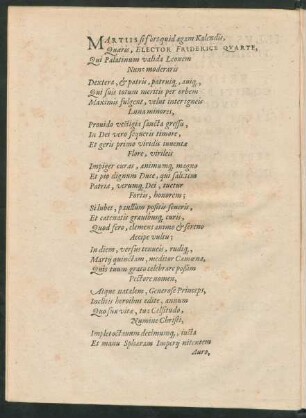 MARTIIS si fors quid agam Kalendis,
Quæris, ELECTOR FRIDERICE QVARTE,
Qui Palatinum valida Leonem
Nunc moderaris
Dextera, & patris, patruiq;, auiq;,
Qui suis totum meritis per orbem
Maximis fulgent, velut inter igneis
Luna minores,
Prouido vestigia sancta gressu,
In Dei vero sequeris timore,
Et geris primo viridis iuuentæ
Flore, virileis
Impiger curas, animumq; magno
Et pio dignum Duce, qui salutem
Patriæ, verumq; Dei, tuetur
Fortis, honorem;
Si lubet, paullùm positis seueris,
Et catenatis grauibusq; curis,
Quod fero, clemens animo & sereno
Accipe vultu;
In diem, versus tenueis, rudisq;,
Martij quinctam, meditor Camœna,
Quîs tuum grato celebrare possim
Pectore nomen,
Atque natalem, Generose Princeps,
Inclitis heroibus edite, annum
Quo sua vitæ, tua Celsitudo,
Numine Christi,
Implet octauum decimumq;, iuncta
Et manu Sphæram Imperij nitentem
Auro,